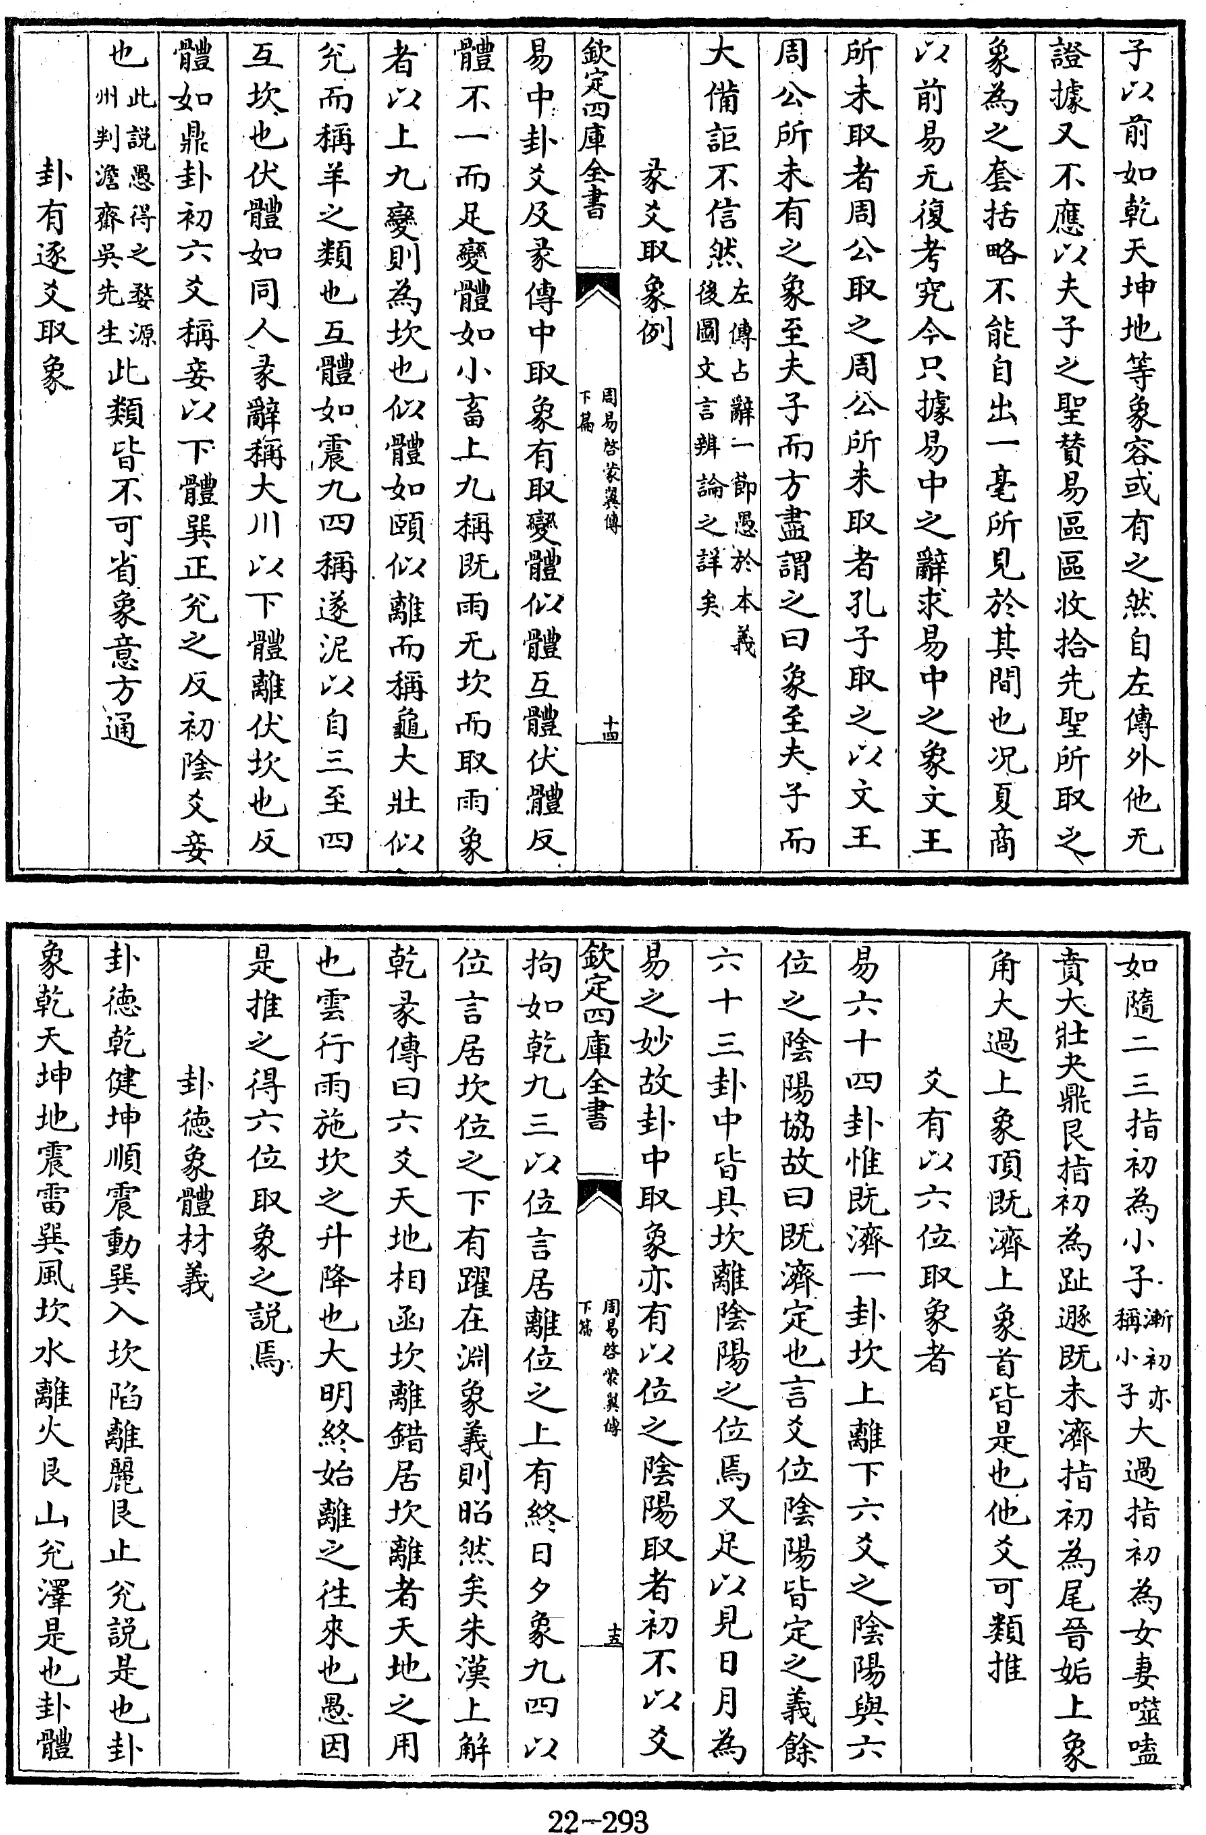 子以前如乾天坤地等象容或有之然自左傳外他无
證據又不應以夫子之聖贊易區區收拾先聖所取之
象為之套括略不能自出一毫所見於其間也況夏商
以前易无復考究今只據易中之辭求易中之象文王
所未取者周公取之周公所未取者孔子取之以文王
周公所未有之象至夫子而方盡謂之曰象至夫子而
大備詎不信然左傳占辭一節愚於本義
後圖文言辨論之詳矣
彖爻取象例
欽定四庫全書
周易啓蒙翼傳
下篇
十四
易中卦爻及彖傳中取象有取變體似體互體伏體反
體不一而足變體如小畜上九稱既雨无坎而取雨象
者以上九變則為坎也似體如頤似離而稱龜大壯似
兊而稱羊之類也互體如震九四稱遂泥以自三至四
互坎也伏體如同人彖辭稱大川以下體離伏坎也反
體如鼎卦初六爻稱妾以下體巽正兊之反初陰爻妾
也此説愚得之婺源
州判澹齋吳先生此類皆不可省象意方通
卦有逐爻取象
如隨二三指初為小子漸初亦
稱小子大過指初為女妻噬嗑
賁大壯夬鼎艮指初為趾遯既未濟指初為尾晉姤上象
角大過上象頂既濟上象首皆是也他爻可類推
爻有以六位取象者
易六十四卦惟既濟一卦坎上離下六爻之陰陽與六
位之陰陽協故曰既濟定也言爻位陰陽皆定之義餘
六十三卦中皆具坎離陰陽之位焉又足以見日月為
易之妙故卦中取象亦有以位之陰陽取者初不以爻
欽定四庫全書
周易啓蒙翼傳
下篇
十五
拘如乾九三以位言居離位之上有終日夕象九四以
位言居坎位之下有躍在淵象義則昭然矣朱漢上解
乾彖傳曰六爻天地相函坎離錯居坎離者天地之用
也雲行雨施坎之升降也大明終始離之徃來也愚因
是推之得六位取象之説焉
卦徳象體材義
卦徳乾健坤順震動巽入坎陷離麗艮止兊説是也卦
象乾天坤地震雷巽風坎水離火艮山兊澤是也卦體
22-293